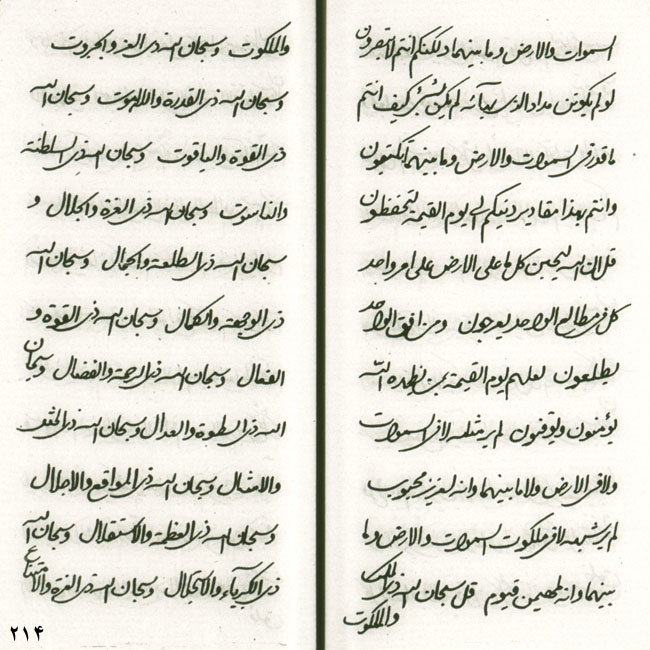 السموات والارض وما بينهما ولكنكم انتم لاتبصرون
لو لم يكونن مداد الذي بهائه لم يكن بشيئ كيف انتم
ما قدر في السموات والارض وما بينهما تكتبون
وانتم بهذا مقادير دينكم الى يوم القيمة لتحفظون
قل ان الله ليحبن كل ما على الارض على امر واحد
كل في مطالع الواحد يعرجون ومن افق الواحد
يطلعون لعلهم يوم القيمة بمن يظهره الله
يؤمنون ويوقنون لم ير مثله لا في السموات
ولا في الارض ولا ما بينهما وانه لعزيز محبوب
لم ير شبهه لا في ملكوت السموات والارض وما
بينهما وانه لمهيمن قيوم قل سبحان الله ذي الملك
والملكوت
والملكوت وسبحان الله ذي العز والجبروت
وسبحان الله ذي القدرة واللاهوت وسبحان الله
ذي القوة والياقوت وسبحان الله ذي السلطنة
والناسوت وسبحان الله ذي العزة والجلال و
سبحان الله ذي الطلعة والجمال وسبحان الله
ذي الوجهة والكمال وسبحان الله ذي القوة و
الفعال وسبحان الله ذي الرحمة والفضال وسبحان
الله ذي السطوة والعدال وسبحان الله ذي المثل
والامثال وسبحان الله ذي المواقع والاجلال
وسبحان الله ذي العظمة والاستقلال وسبحان الله
ذي الكبرياء والاستجلال وسبحان الله ذي العزة والامتناع
٢١۴